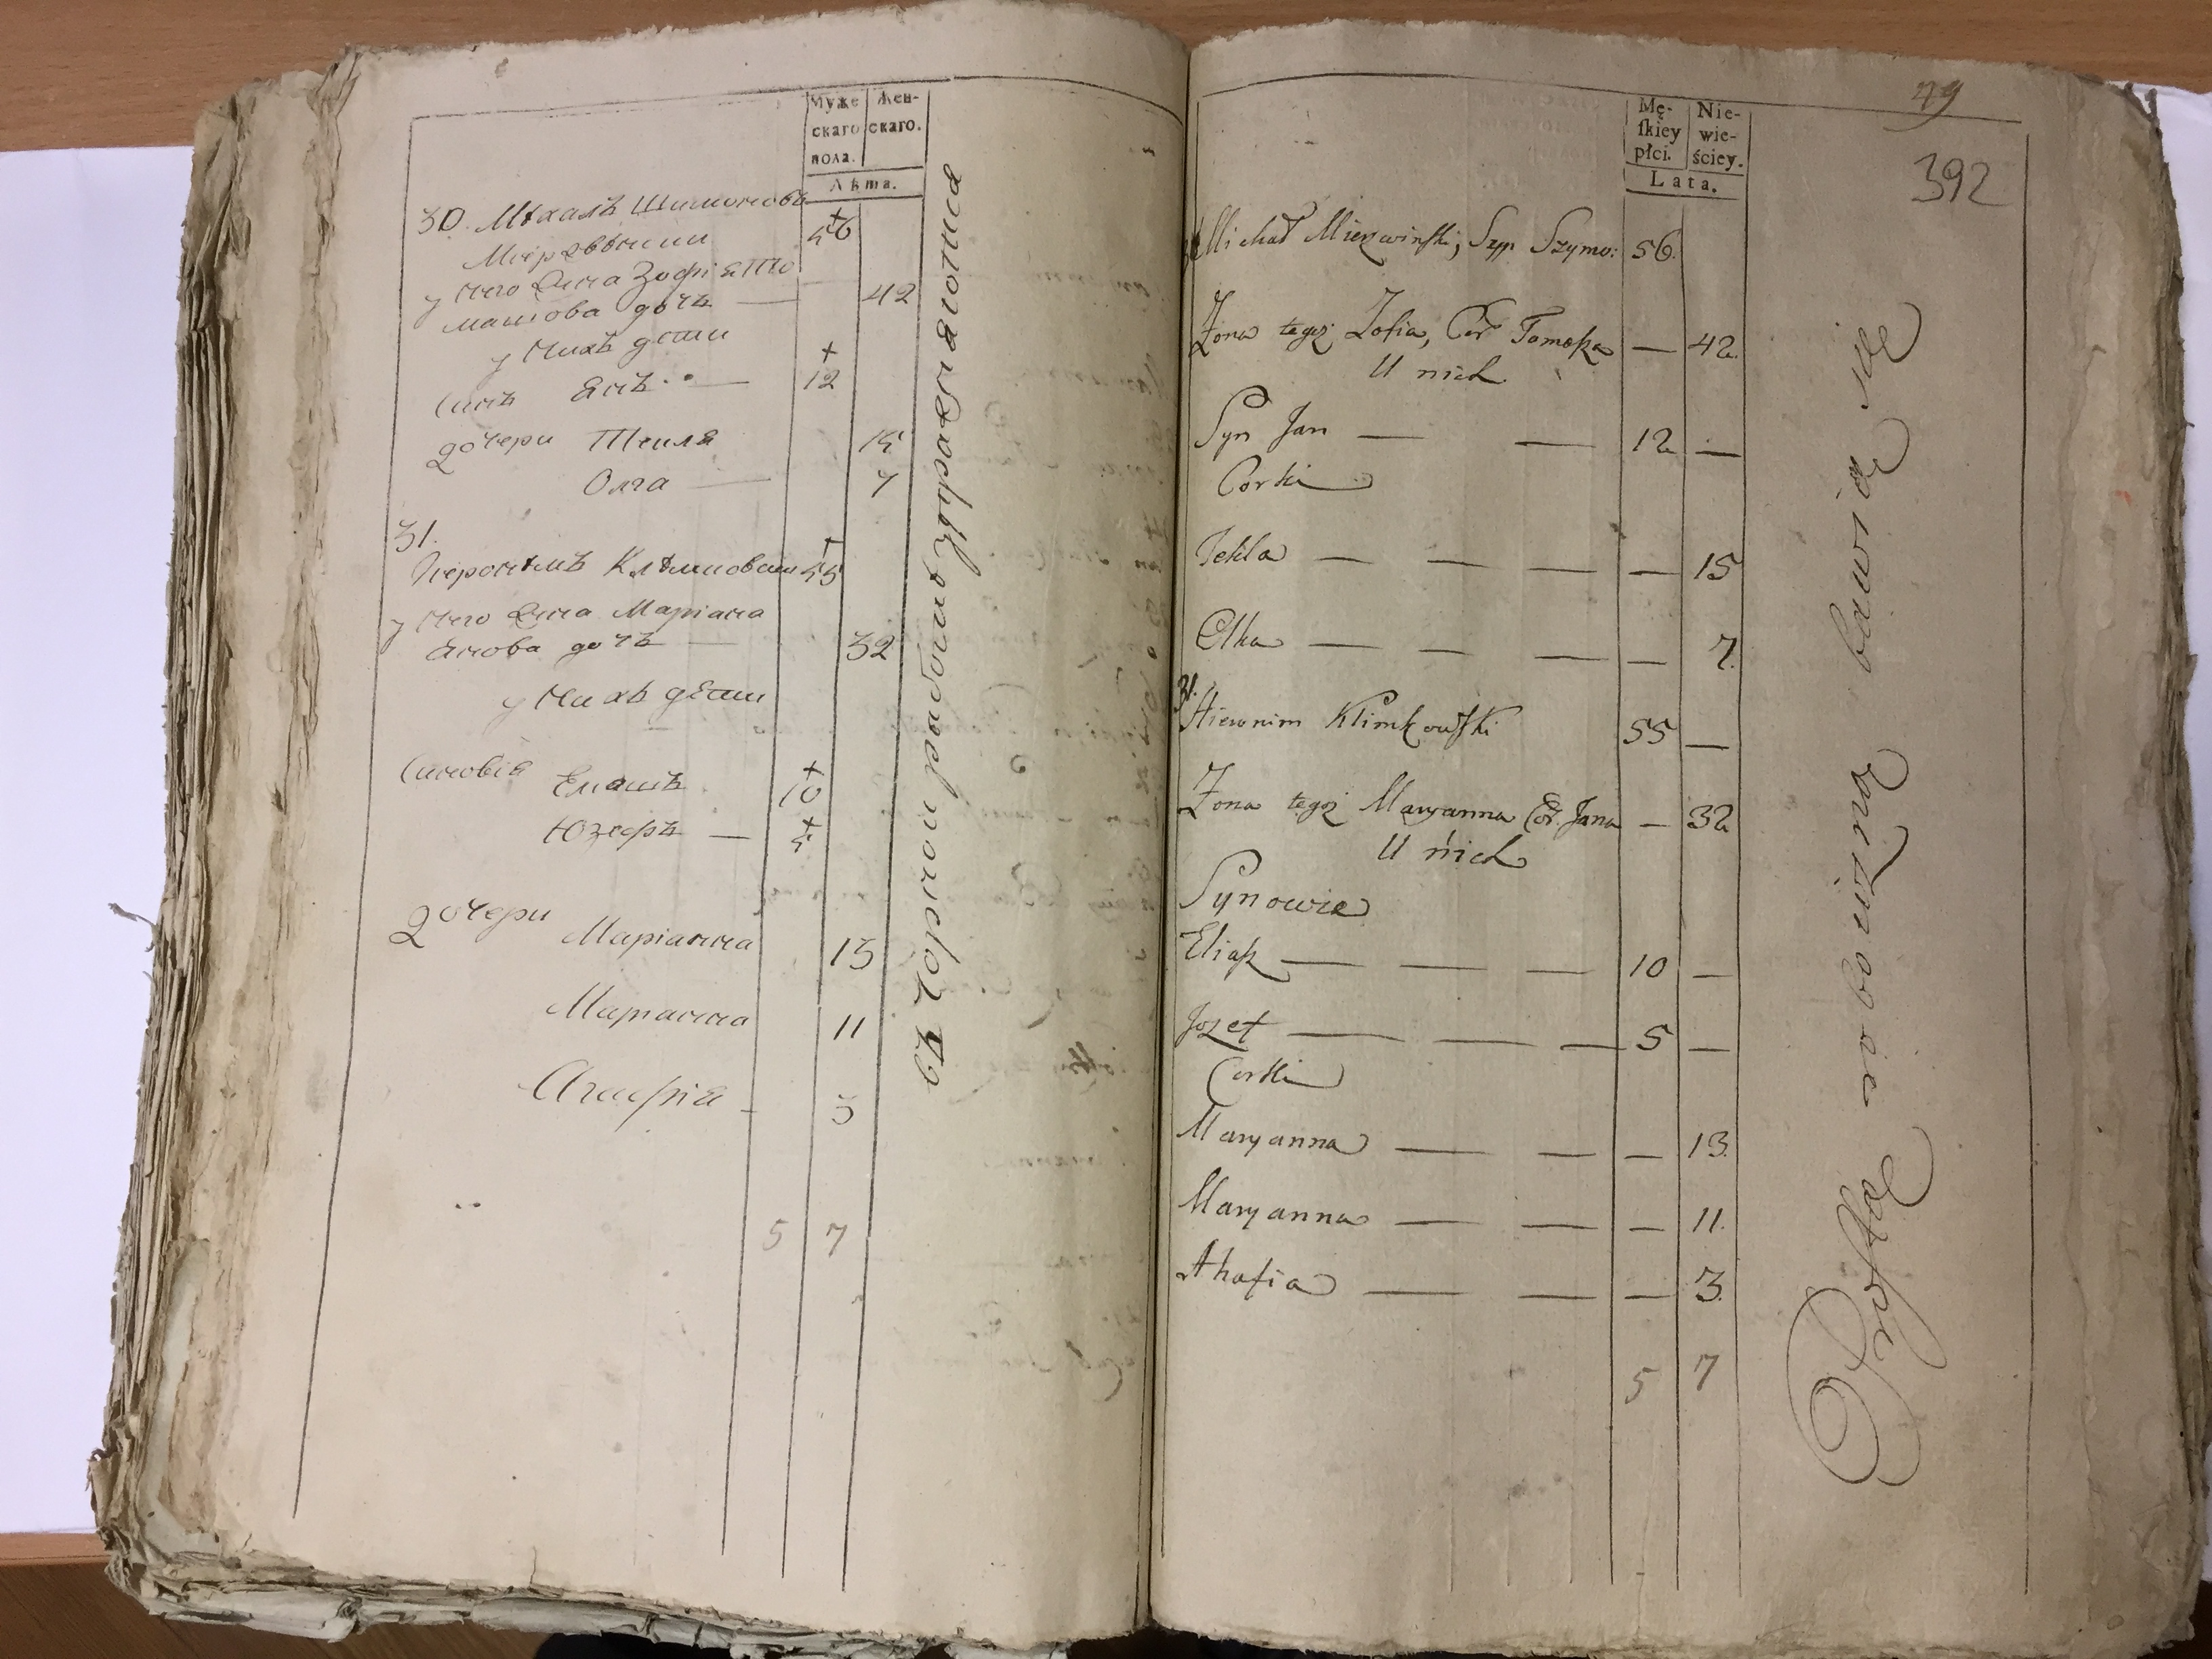 Муже
скаго
пола.
Жен-
скаго.
Лѣта.
30. Михалъ Шимоновъ
56
у него Жена Зофія То
машова дочь — 42
у нихъ дети
Синъ Янъ — 12
дочери Текля 15
Олга — 7
31.
55
у него Жена Маріана
Янова дочь — 32
у нихъ дѣти
Синовія Еліашъ 10
Юзефъ — 5
дочери Маріанна 13
Маріанна 11
Агафія — 3
5 7
въ Чорной работѣ упражняютца
79
392
Mę-
ſkiey
płci.
Nie-
wie-
ściey.
Lata.
Michał Mierzwinſki, Syn Szymo: 56.
Żona tegoż Zofia, Cór Tomaſza — 42.
U nich
Syn Jan — — 12 —
Corki
Tekla — — — — 15
Olka — — — — 7.
31.
Hieronim Klimkowſki 55 —
Żona tegoż Maryanna Cór. Jana — 32
U nich
Synowie
Eliaſz — — — 10 —
Jozef — — — 5 —
Corki
Maryanna — — — 13.
Maryanna — — — 11.
Ahafia — — — 3.
5 7
Proſtą robocizną bawią się